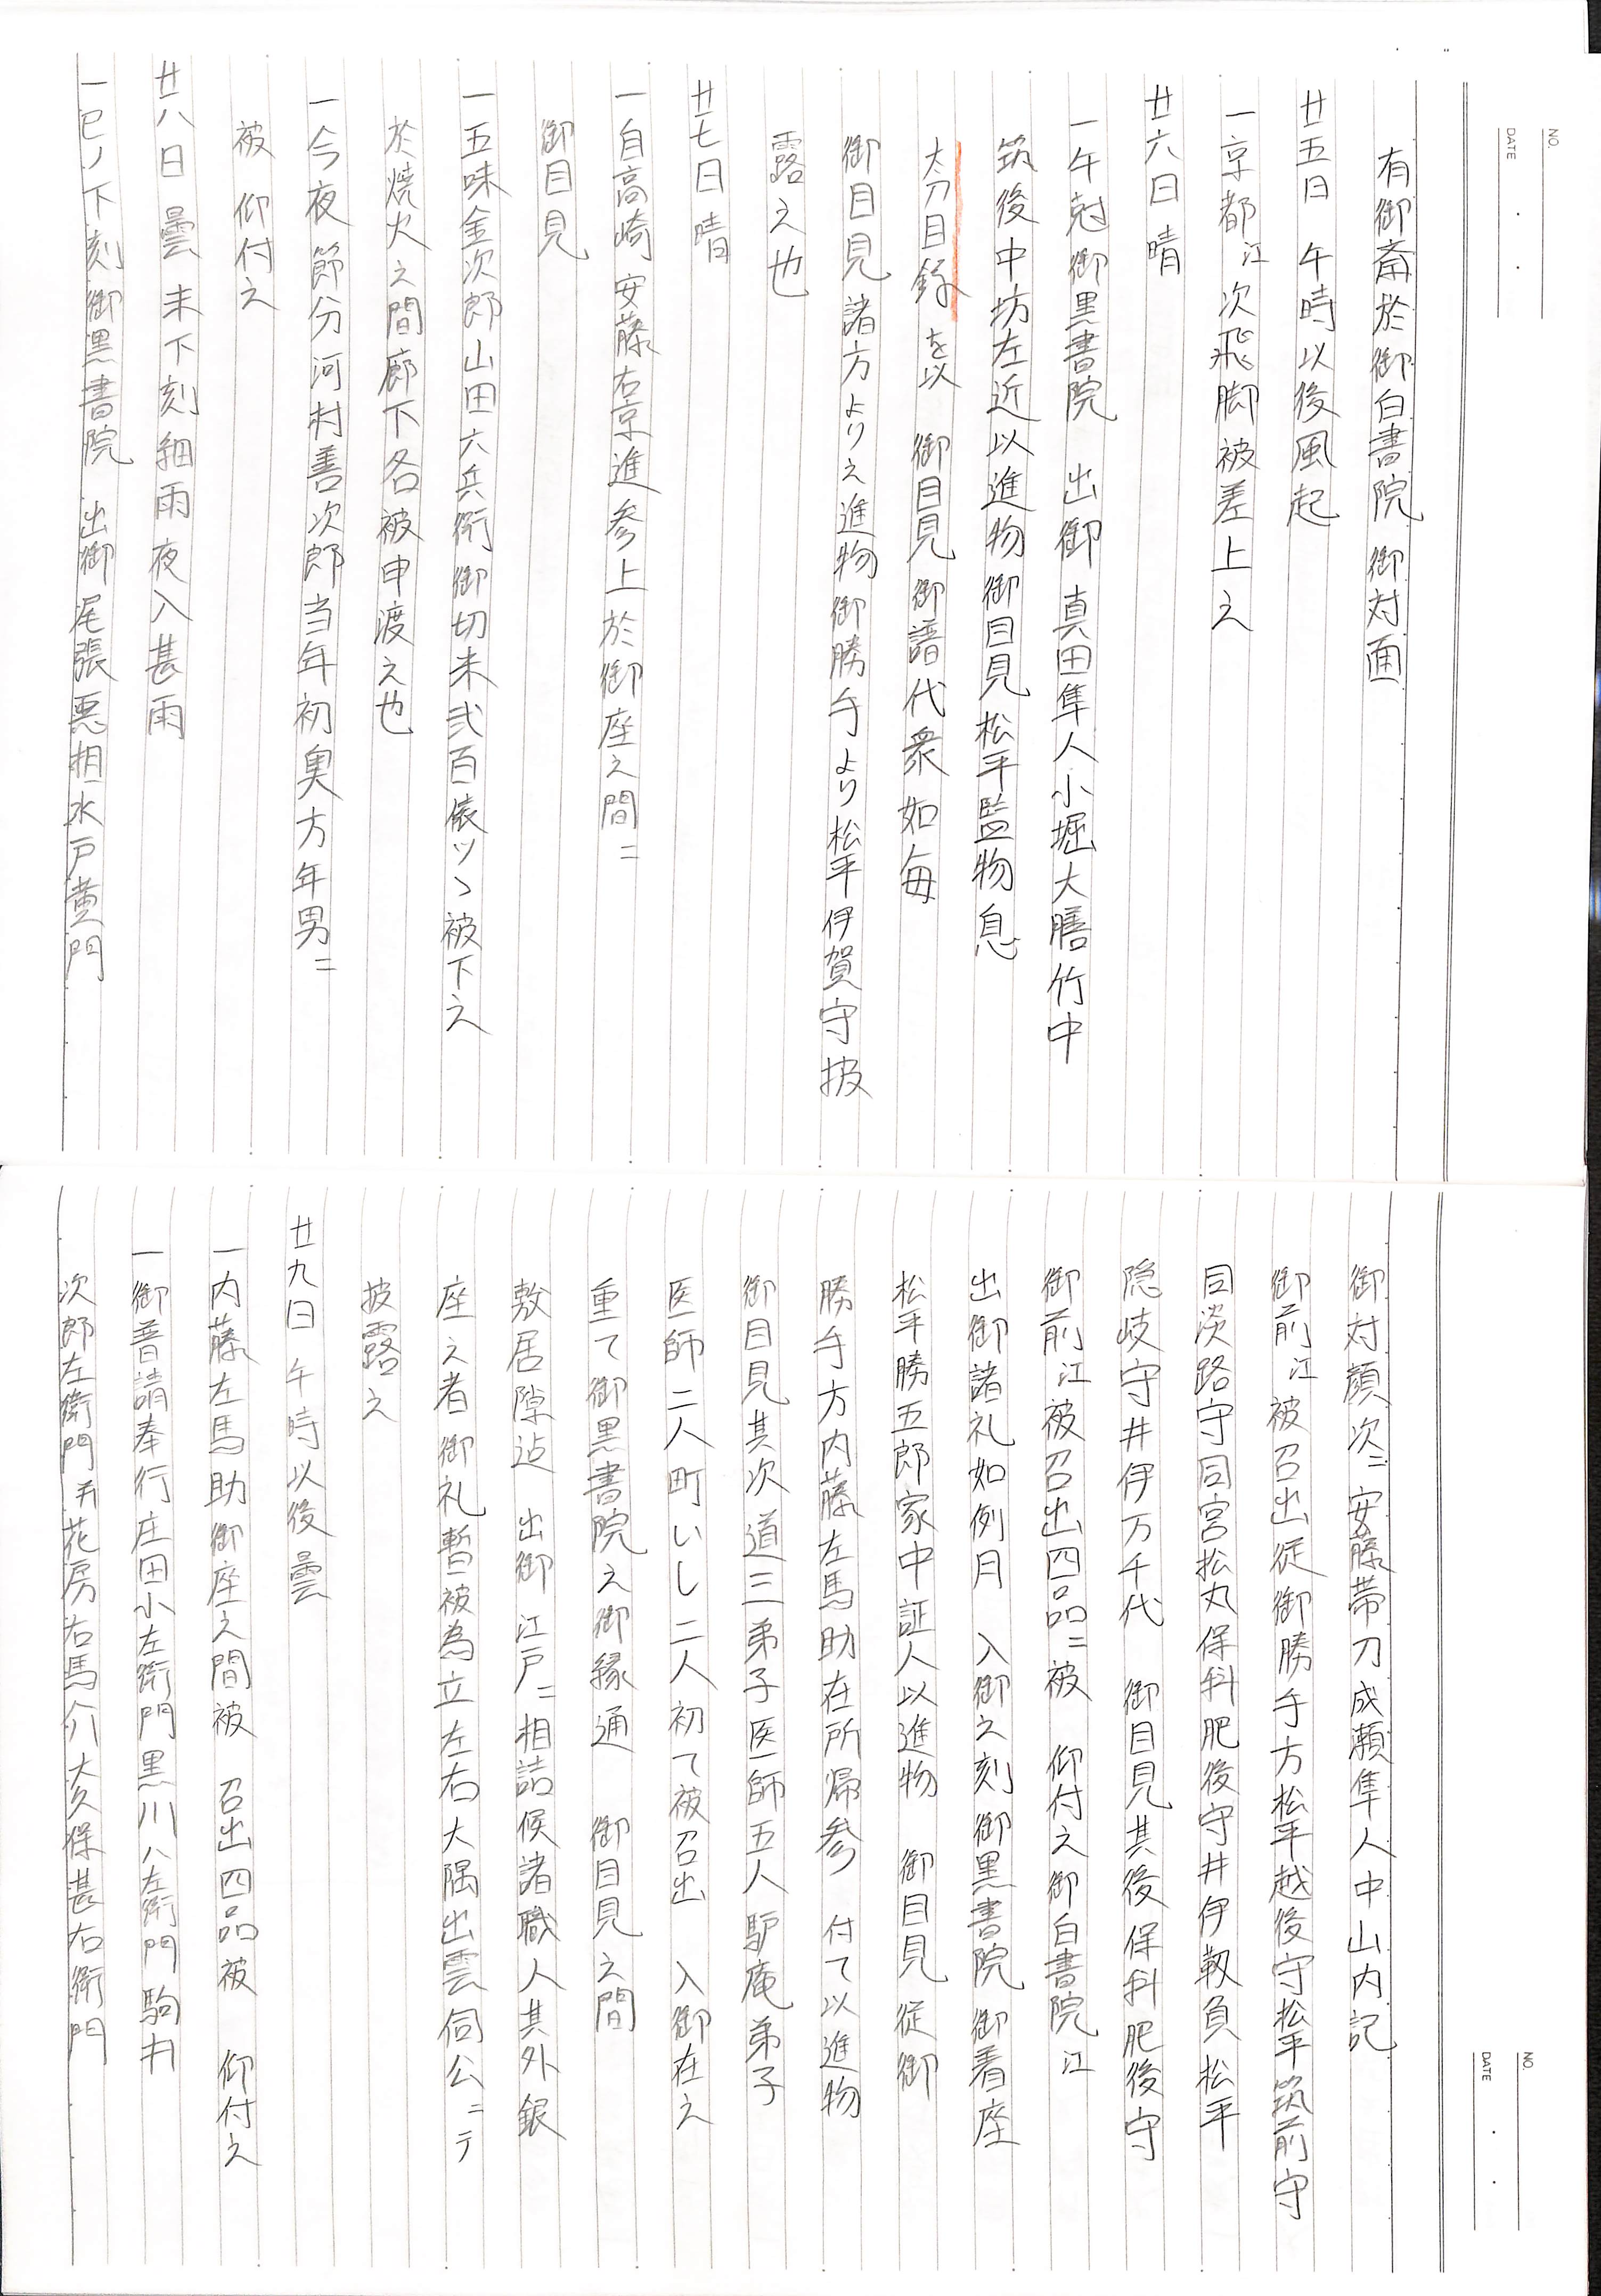 NO.
DATE
有御斎於御白書院　御対面
廿五日　午時以後風起
一京都江次飛脚被差上之
廿六日晴
一午剋御黒書院　出御　真田隼人小堀大膳竹中
筑後中坊左近以進物御目見松平監物息
太刀目録を以　御目見御譜代衆如毎
御目見諸方より之進物御勝手より松平伊賀守披
露之也
廿七日晴
一自高崎安藤右京進参上於御座之間ニ
御目見
一五味金次郎山田六兵衛御切米弐百俵ツヽ被下之
於焼火之間廊下各被申渡之也
一今夜節分河村善次郎当年初奥方年男ニ
被　仰付之
廿八日　曇未下刻細雨夜入甚雨
一巳ノ下刻御黒書院　出御尾張亜相水戸黄門
NO.
DATE
御対顔次ニ安藤帯刀成瀬隼人中山内記
御前江被召出従御勝手方松平越後守松平筑前守
同淡路守同宮松丸保科肥後守井伊靱負松平
隠岐守井伊万千代　御目見其後保科肥後守
御前江被召出四品ニ被　仰付之御白書院江
出御諸礼如例月　入御之刻御黒書院御着座
松平勝五郎家中証人以進物　御目見従御
勝手方内藤左馬助在所帰参　付て以進物
御目見其次道三弟子医師五人驢庵弟子
医師二人町いし二人初て被召出　入御在之
重て御黒書院之御縁通　御目見之間
敷居隙迠　出御江戸ニ相詰候諸職人其外銀
座之者御礼暫被為立左右大隅出雲伺公ニテ
披露之
廿九日　午時以後曇
一内藤左馬助御座之間被　召出四品被　仰付之
一御普請奉行庄田小左衛門黒川八左衛門駒井
次郎左衛門并花房右馬介大久保甚右衛門